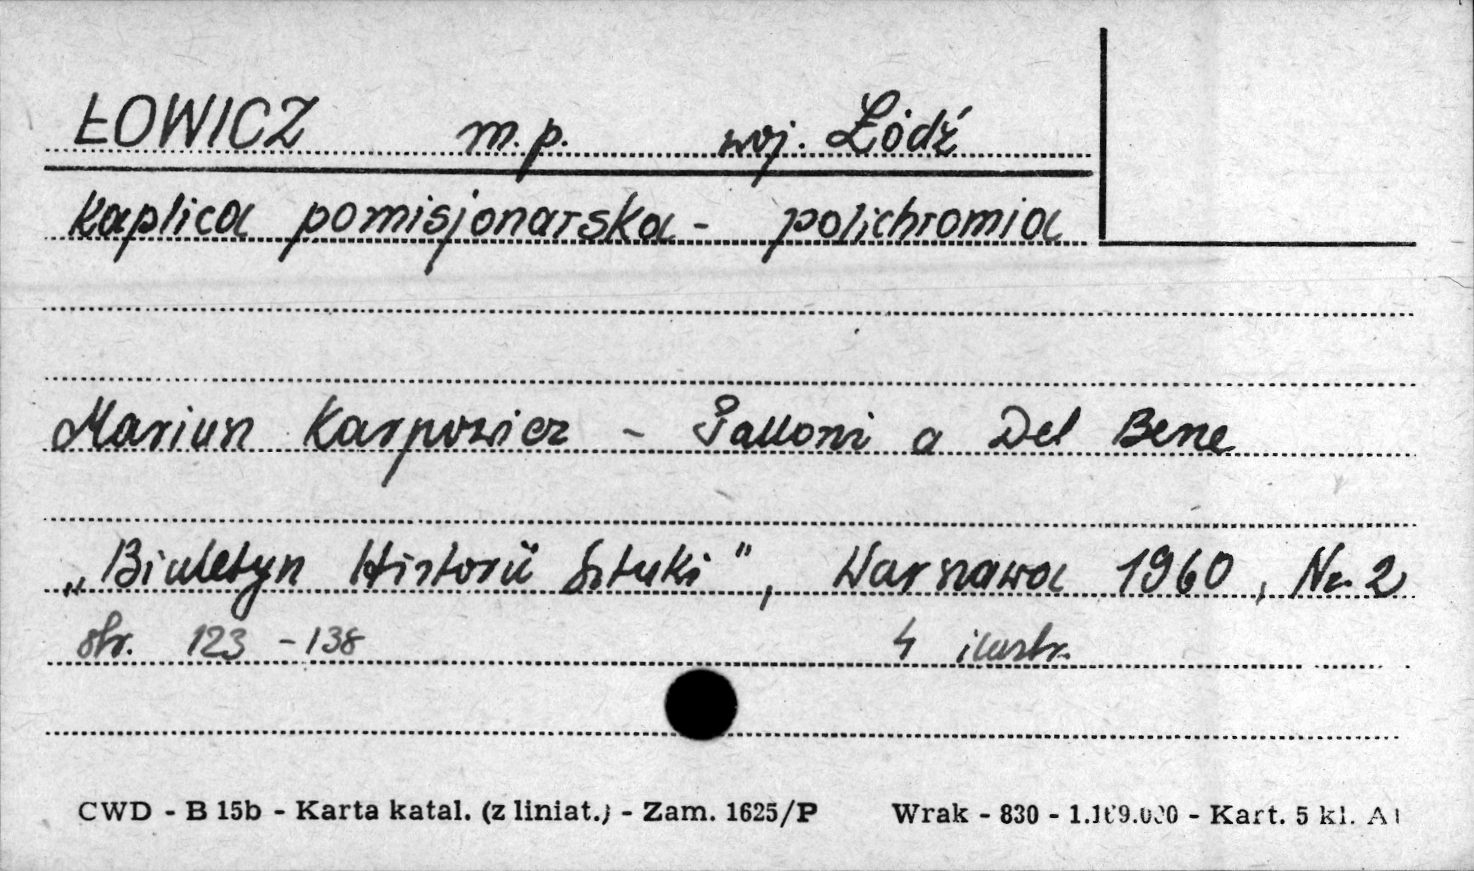 ŁOWICZ m.p. woj. Łódź
Kaplica pomisjonarska - polichromia
Mariusz Karpowicz - Palloni a Del Bene
„Biuletyn Historii Sztuki", Warszawa 1960, Nr. 2
str. 123 - 138 4 ilustr.
CWD - B 15b - Karta katal. (z liniat.) - Zam. 1625/P Wrak - 830 - Kart. 5 kl.